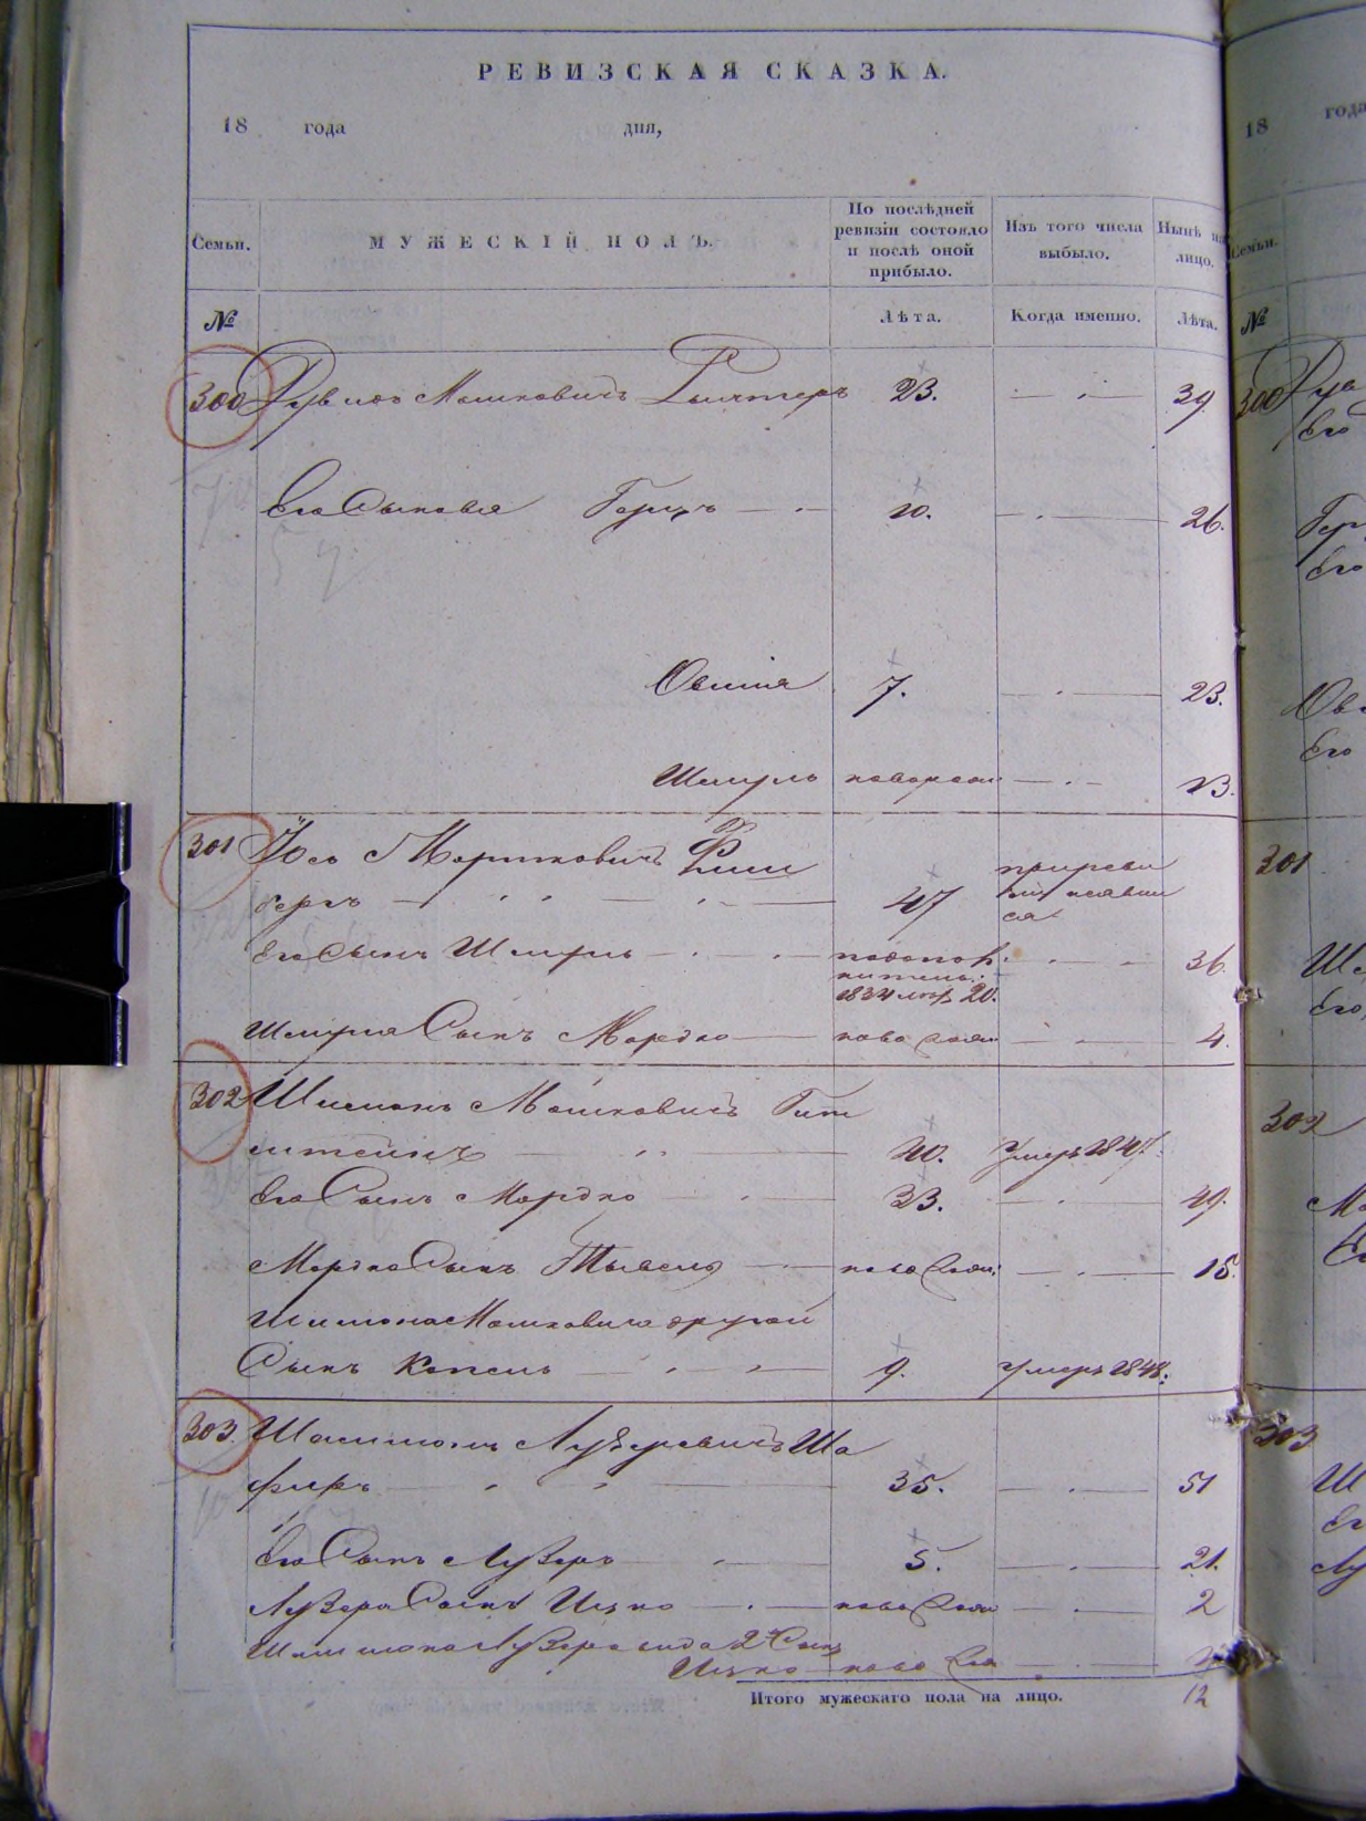 РЕВИЗСКАЯ СКАЗКА.
18 года дня,
Семьи. МУЖЕСКІЙ ПОЛЪ. По послѣдней ревизіи состояло и послѣ оной прибыло. Изъ того числа выбыло. Нынѣ на лицо.
№ Лѣта. Когда именно. Лѣта.
300 Рувинъ Мошковичъ 23. 39
Его Сыновья Герцъ 10. 26.
Овшия 7. 23.
Шмуль новорож 13.
301 Іось Мортковичъ Фиш
бергъ 47
Его Сынъ Шмуль 1834 20. 36
Шмуля Сынъ Мордко новорож 4.
302 Шимонъ Мошковичъ Гит
штейнъ 40. умеръ 184
Его Сынъ Мордко 33. 49.
Мордка Сынъ новорож: 15.
Шимона Мошковича другой
Сынъ Копель 9. умеръ 1848.
303. Лузеровичъ Ша
фиръ 35. 51
Его Сынъ Лузеръ 5. 21.
Лузера Сынъ Ицко новорож 2
Лузеровича 2й Сынъ
Ицко новорож
Итого мужескаго пола на лицо. 12
18 года
Семьи.
№
300 Рув
Его
Гер
Его
Ов
Его
301
Шм
Его
302
Мо
303
Ш
Ег
Лу